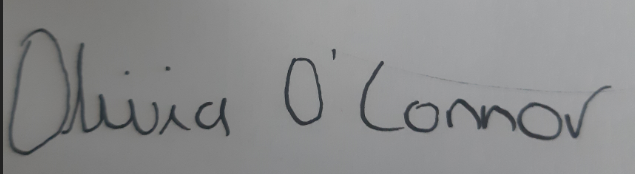 Olivia O'Connor